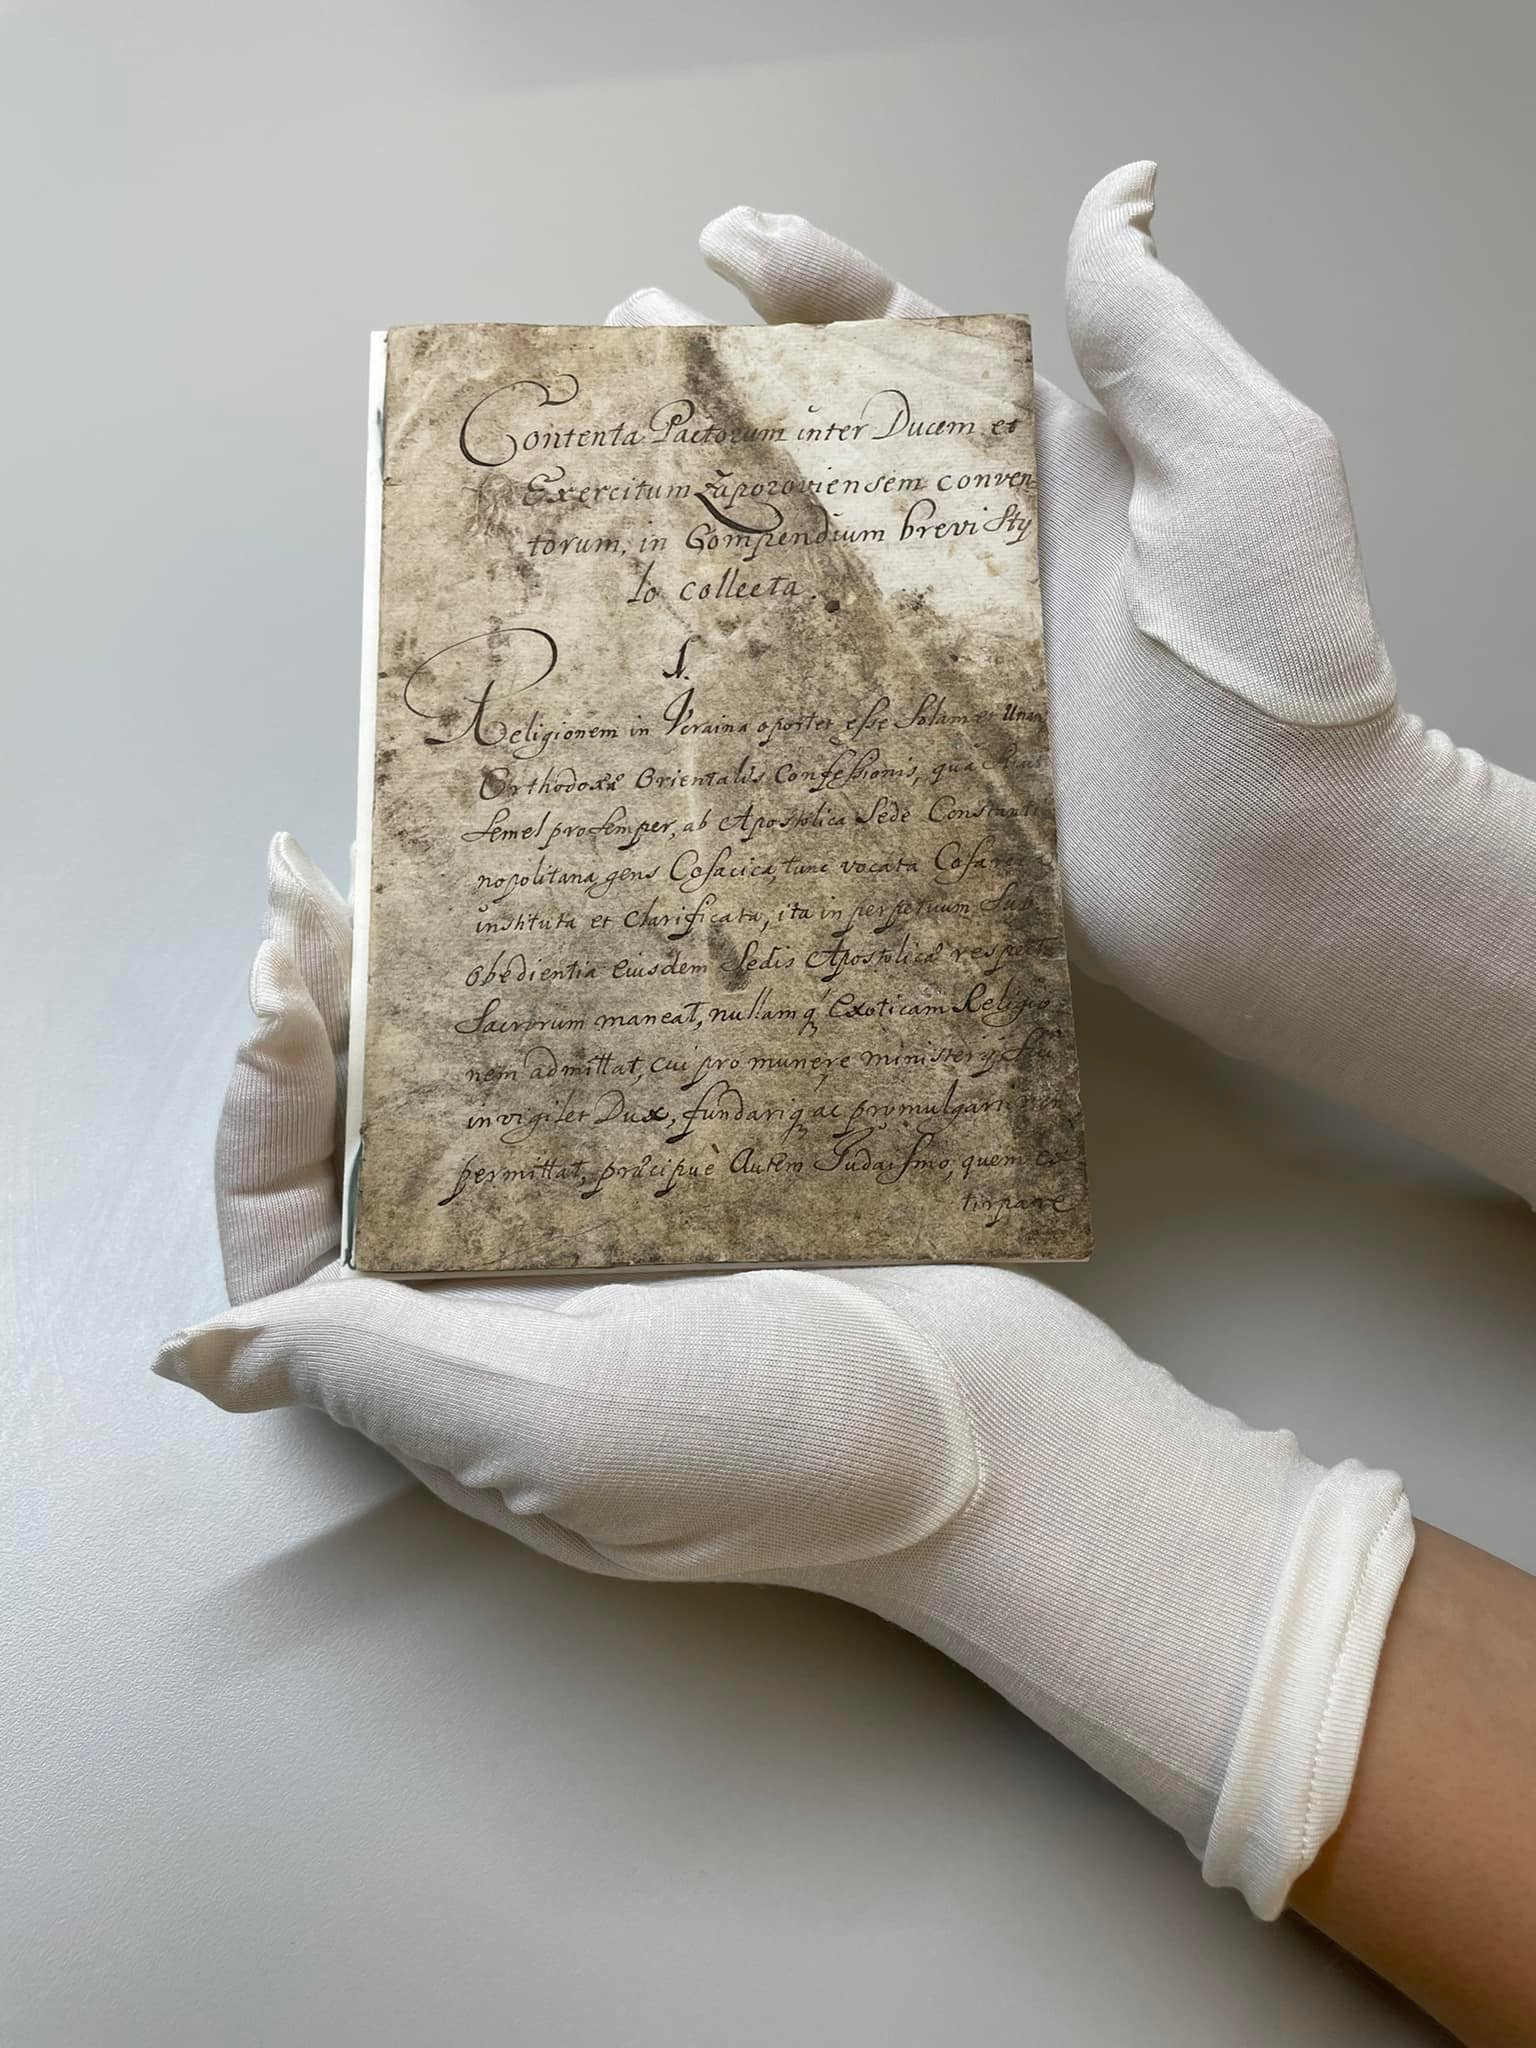 Contenta Pactorum inter Ducem et
Exercitum Zaporoviensem conven
torum, in Compendium brevi Sty
lo collecta.
1.
Religionem in Vcraina oportet esse Solam et Unam
Orthodoxæ Orientalis Confessionis, qua
semel pro semper, ab Apostolica Sede Constanti
nopolitana, gens Cosacica, tunc vocata
instituta et clarificata, ita in perpetuum, Sub
obedientia eiusdem Sedis Apostolicæ respectu
Sacrorum maneat, nullamq; exoticam Religio
nem admittat, cui pro munere ministerij
invigilet Dux, fundariq; ac promulgari
permittat, præcipuè autem Iudaismo, quem
tirpare